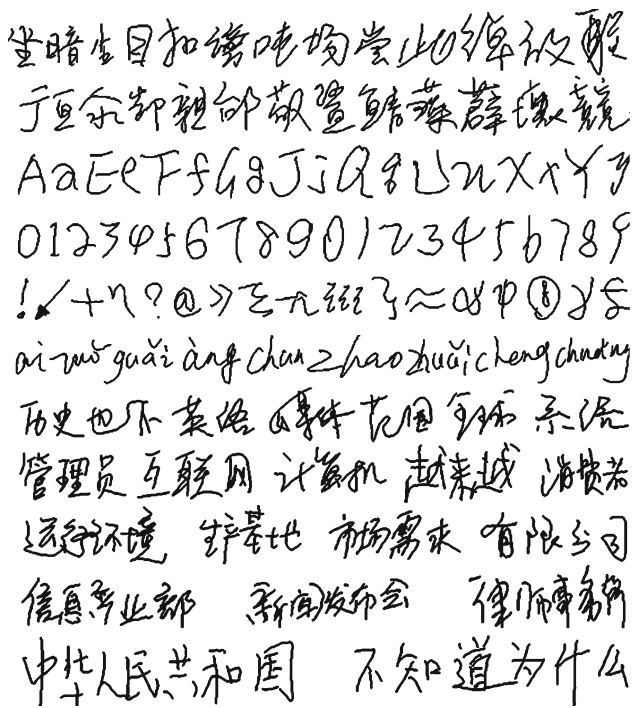 坐暗生目扣谤吨场尝此绰议
亍亘氽卸親郃菽鲭藻薜壤競
AaEeFfGgJjQqUuXxYy
01234567890123456789
!↙+η?@》≈α
ai guǎi àng chan zhao zhuǎi cheng chuang
历史也不 英语 媒体 范围 全球 系统
管理员 互联网 计算机 越来越 消费者
运行环境 生产基地 市场需求 有限公司
信息产业部 新闻发布会 律师事务所
中华人民共和国 不知道为什么